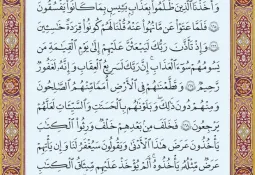 وَأَخَذْنَا ٱلَّذِينَ ظَلَمُوا۟ بِعَذَابٍۭ بَـِٔيسٍۭ بِمَا كَانُوا۟ يَفْسُقُونَ
﴿١٦٥﴾ فَلَمَّا عَتَوْا۟ عَن مَّا نُهُوا۟ عَنْهُ قُلْنَا لَهُمْ كُونُوا۟ قِرَدَةً خَٰسِـِٔينَ
﴿١٦٦﴾ وَإِذْ تَأَذَّنَ رَبُّكَ لَيَبْعَثَنَّ عَلَيْهِمْ إِلَىٰ يَوْمِ ٱلْقِيَٰمَةِ مَن
يَسُومُهُمْ سُوٓءَ ٱلْعَذَابِ إِنَّ رَبَّكَ لَسَرِيعُ ٱلْعِقَابِ وَإِنَّهُۥ لَغَفُورٌ
رَّحِيمٌ ﴿١٦٧﴾ وَقَطَّعْنَٰهُمْ فِى ٱلْأَرْضِ أُمَمًا مِّنْهُمُ ٱلصَّٰلِحُونَ
وَمِنْهُمْ دُونَ ذَٰلِكَ وَبَلَوْنَٰهُم بِٱلْحَسَنَٰتِ وَٱلسَّيِّـَٔاتِ لَعَلَّهُمْ
يَرْجِعُونَ ﴿١٦٨﴾ فَخَلَفَ مِنۢ بَعْدِهِمْ خَلْفٌ وَرِثُوا۟ ٱلْكِتَٰبَ
يَأْخُذُونَ عَرَضَ هَٰذَا ٱلْأَدْنَىٰ وَيَقُولُونَ سَيُغْفَرُ لَنَا وَإِن يَأْتِهِمْ
عَرَضٌ مِّثْلُهُۥ يَأْخُذُوهُ أَلَمْ يُؤْخَذْ عَلَيْهِم مِّيثَٰقُ ٱلْكِتَٰبِ